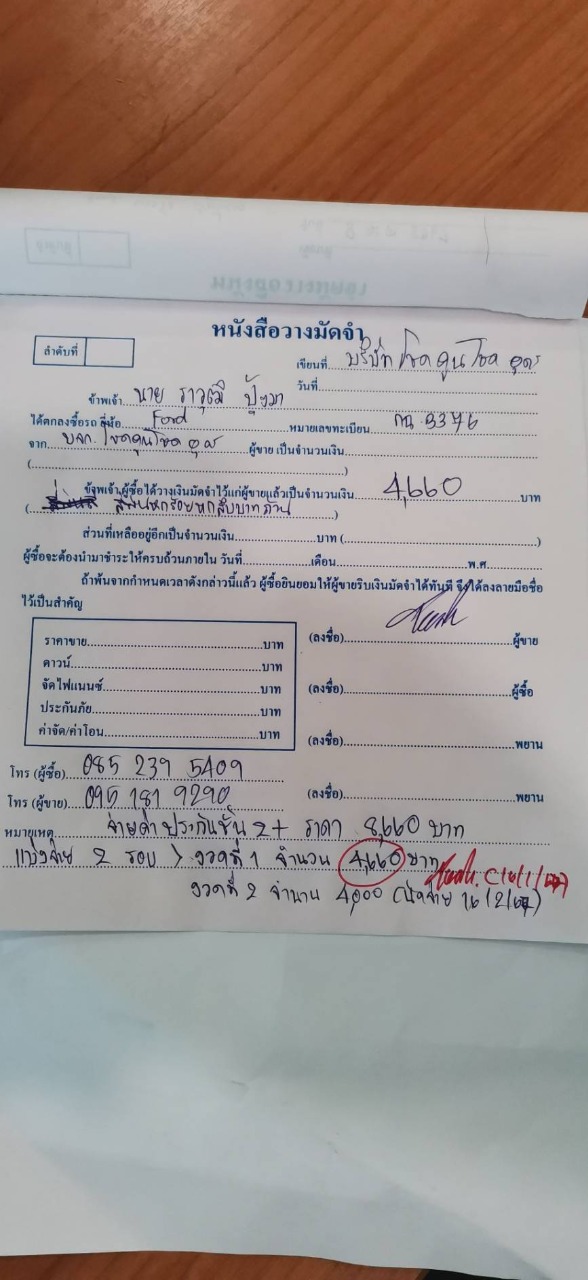 หนังสือวางมัดจำ
ลำดับที่
เขียนที่ บริษัท โชคคูนโชค อุดร
วันที่
ข้าพเจ้า นาย ราวุฒิ
ได้ตกลงซื้อรถ ยี่ห้อ Ford หมายเลขทะเบียน 3376
จาก บจก. โชคคูนโชค อุดร ผู้ขาย เป็นจำนวนเงิน
(....)
ข้าพเจ้าผู้ซื้อได้วางเงินมัดจำไว้แก่ผู้ขายแล้วเป็นจำนวนเงิน 4,660 บาท
( สี่พันหกร้อยหกสิบบาทถ้วน )
ส่วนที่เหลืออยู่อีกเป็นจำนวนเงิน....บาท (....)
ผู้ซื้อจะต้องนำมาชำระให้ครบถ้วนภายใน วันที่....เดือน....พ.ศ.
ถ้าพ้นจากกำหนดเวลาดังกล่าวนี้แล้ว ผู้ซื้อยินยอมให้ผู้ขายริบเงินมัดจำได้ทันที จึงได้ลงลายมือชื่อ
ไว้เป็นสำคัญ
ราคาขาย....บาท
ดาวน์....บาท
จัดไฟแนนซ์....บาท
ประกันภัย....บาท
ค่าจัด/ค่าโอน....บาท
(ลงชื่อ)....ผู้ขาย
(ลงชื่อ)....ผู้ซื้อ
(ลงชื่อ)....พยาน
(ลงชื่อ)....พยาน
โทร (ผู้ซื้อ) 085 239 5409
โทร (ผู้ขาย) 095 181 9290
หมายเหตุ จ่ายค่าประกันชั้น 2+ ราคา 8,660 บาท
แบ่งจ่าย 2 รอบ > งวดที่ 1 จำนวน 4,660 บาท
งวดที่ 2 จำนวน 4,000 (นัดจ่าย 16/2/67)